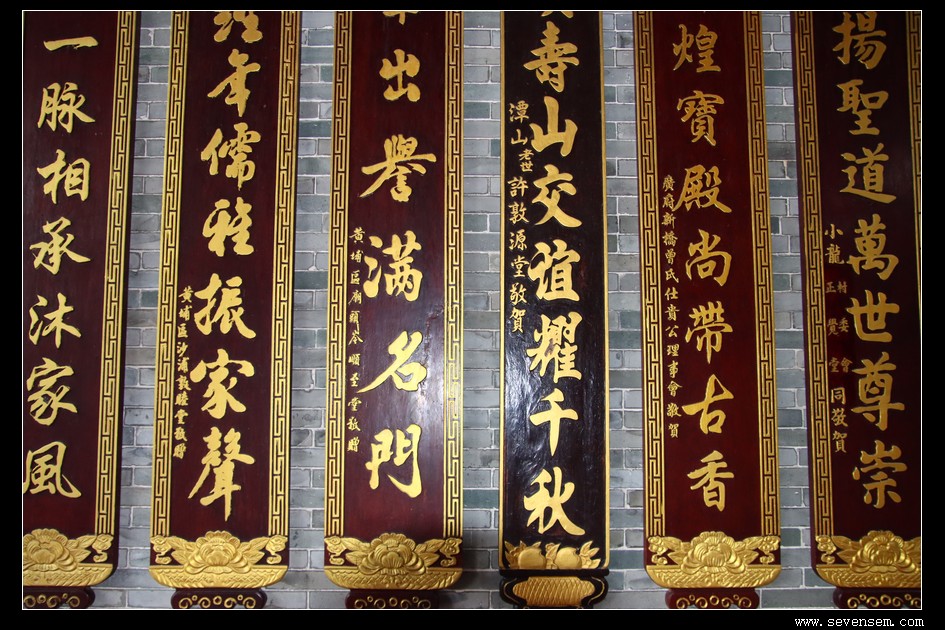 揚聖道萬世尊崇
小龍村委會
正覺堂同敬賀
煌寶殿尚帶古香
廣府新橋曾氏仕貴公理事會敬賀
壽山交誼耀千秋
潭山老世許敦源堂敬賀
出譽滿名門
黄埔區廟頭岑順圣堂敬贈
年儒雅振家聲
黄埔區沙浦敦睦堂敬贈
一脉相承沐家風
www.sevensem.com